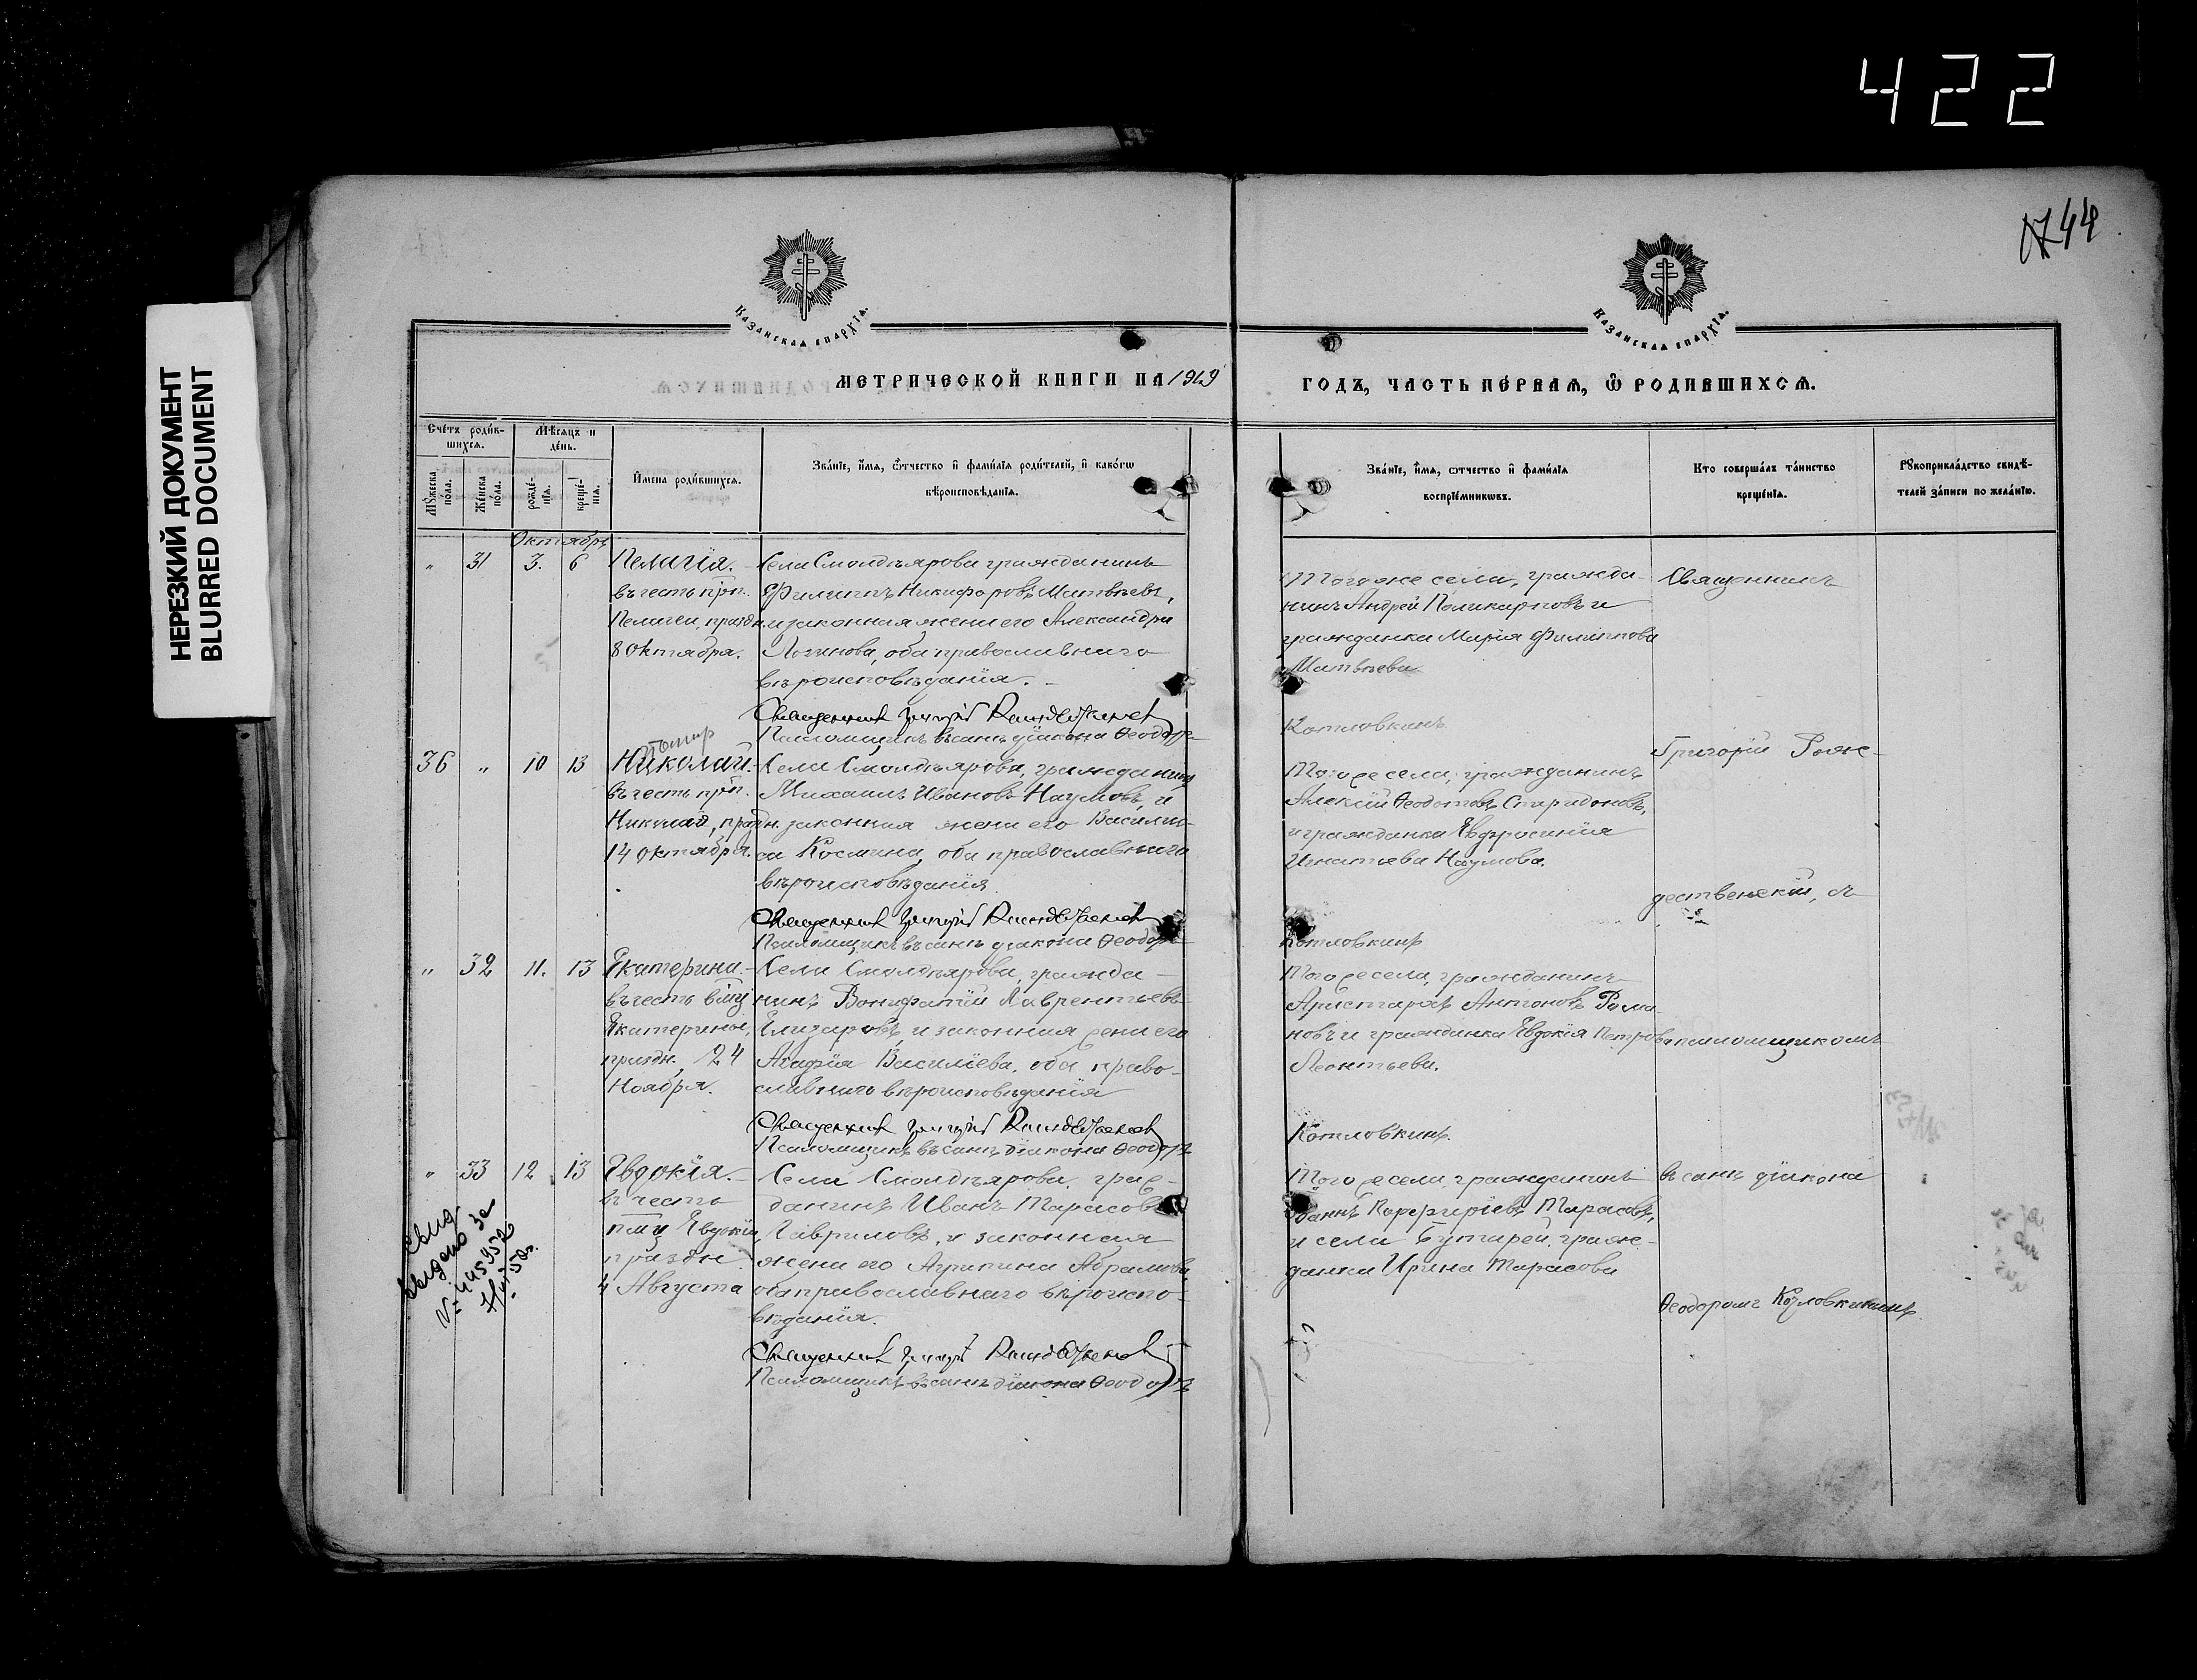 422
НЕРЕЗКИЙ ДОКУМЕНТ
BLURRED DOCUMENT
44
Казанская епархїѧ.
Казанская епархїѧ.
МЕТРИЧЕСКОЙ КНИГИ НА 1919
ГОДЪ, ЧАСТЬ ПЕРВАѦ, Ѿ РОДИВШИХСѦ.
Счетъ родив-
шихся.
Мѣсяцъ и
день.
Мужеска
пола.
Женска
пола.
рожде-
нїя.
креще-
нїя.
Имена родившихся.
Званїе, имя, отчество и фамилїя родителей, и какогѡ
вѣроисповѣданїя.
Званїе, имя, отчество и фамилїя
воспрїемникѡвъ.
Кто совершалъ таинство
крещенїя.
Рукоприкладство свидѣ-
телей записи по желанїю.
Октябрь
" 31 3. 6 Пелагїя.
въ честь прп.
Пелагеи, праздн.
8 Октября.
Села Смолдеярова гражданинъ
Филиппъ Никифоровъ Матвѣевъ,
и законная жена его Александра
Логинова, оба православнаго
вѣроисповѣданїя.
Священникъ Григорїй Рождественскій
Псаломщикъ въ санѣ дїакона Ѳеодоръ
Тогоже села, гражда-
нинъ Андрей Поликарповъ и
гражданка Марїя Филиппова
Матвѣева.
Козловкинъ
Священникъ
36 " 10 13 Николай.
въ честь прп.
Николая, праздн.
14 Октября.
Села Смолдеярова, гражданинъ
Михаилъ Ивановъ Наумовъ, и
законная жена его Василис-
са Космина, оба православнаго
вѣроисповѣданїя.
Священникъ Григорїй Рождественскій
Псаломщикъ въ санѣ дїакона Ѳеодоръ
Того же села, гражданинъ
Алексїй Ѳеодотовъ Спиридоновъ,
и гражданка Евфросинїя
Игнатьева Наумова.
Козловкинъ
Григорїй Рож-
дественскїй, съ
" 32 11. 13 Екатерина.
въ честь вмц
Екатерины,
праздн. 24
Ноября.
Села Смолдеярова, гражда-
нинъ Вонифатїй Лаврентьевъ
Елизаровъ, и законная жена его
Агафїя Василїева, оба право-
славнаго вѣроисповѣданїя
Священникъ Григорїй Рождественскій
Псаломщикъ въ санѣ дїакона Ѳеодоръ
Того же села, гражданинъ
Аристархъ Антоновъ Рома-
новъ и гражданка Евдокїя Петрова
Леонтьева.
Козловкинъ.
псаломщикомъ
" 33 12 13 Евдокїя.
въ честь
пмц Евдокїи
праздн.
4 Августа
Села Смолдеярова, граж-
данинъ Иванъ Тарасовъ
Гавриловъ, и законная
жена его Агрипина Абрамова,
оба православнаго вѣроиспо-
вѣданїя.
Священникъ Григорїй Рождественскій
Псаломщикъ въ санѣ дїакона Ѳеодоръ
Того же села, гражданинъ
Іоаннъ Порфирїевъ Тарасовъ,
и села Бутырей, граж-
данка Ирина Тарасова
въ санѣ дїакона
Ѳеодоромъ Козловкинымъ.
Свид.
выдано за